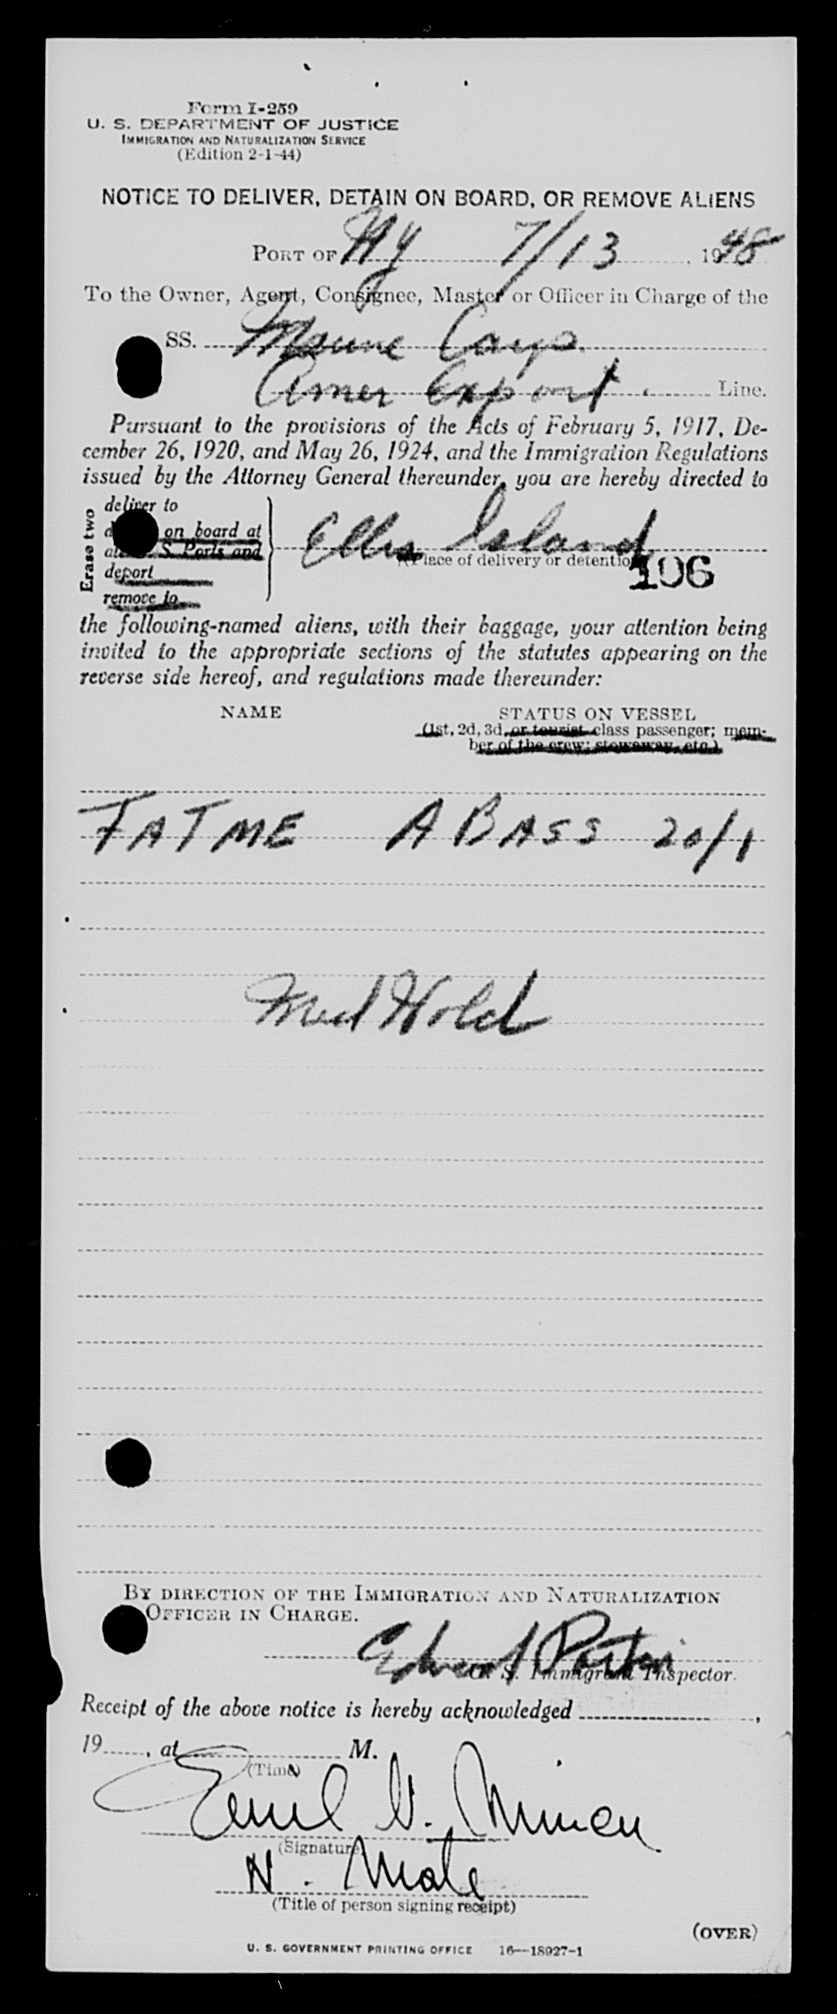 Form I-259
U. S. DEPARTMENT OF JUSTICE
IMMIGRATION AND NATURALIZATION SERVICE
(Edition 2-1-44)
NOTICE TO DELIVER, DETAIN ON BOARD, OR REMOVE ALIENS
PORT OF NY 7/13, 1948
To the Owner, Agent, Consignee, Master or Officer in Charge of the
SS. Marine Carp.
Amer Export. Line.
Pursuant to the provisions of the Acts of February 5, 1917, De-
cember 26, 1920, and May 26, 1924, and the Immigration Regulations
issued by the Attorney General thereunder, you are hereby directed to
Erase two
deliver to
on board at
S. Ports and
deport
remove to
Ellis Island
(Place of delivery or detention)
106
the following-named aliens, with their baggage, your attention being
invited to the appropriate sections of the statutes appearing on the
reverse side hereof, and regulations made thereunder:
NAME STATUS ON VESSEL
(1st, 2d, 3d, or tourist class passenger; mem-
ber of the crew; stowaway, etc.)
FATME ABASS 20/1
Med Hold
BY DIRECTION OF THE IMMIGRATION AND NATURALIZATION
OFFICER IN CHARGE.
Edward
U. S. Immigrant Inspector.
Receipt of the above notice is hereby acknowledged ,
19 , at M.
(Time)
Emil V.
(Signature)
N. Mate
(Title of person signing receipt)
(OVER)
U. S. GOVERNMENT PRINTING OFFICE 16—18927-1